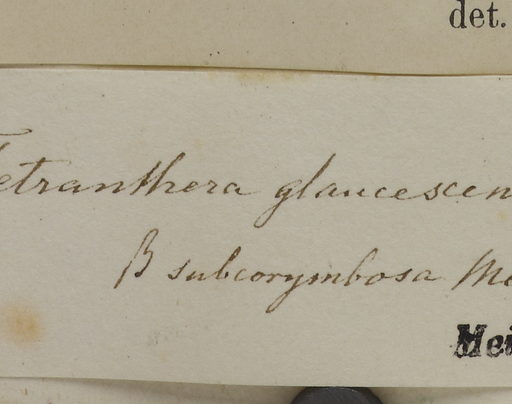 det.
Tetranthera glaucescen
β subcorymbosa Me
Mei